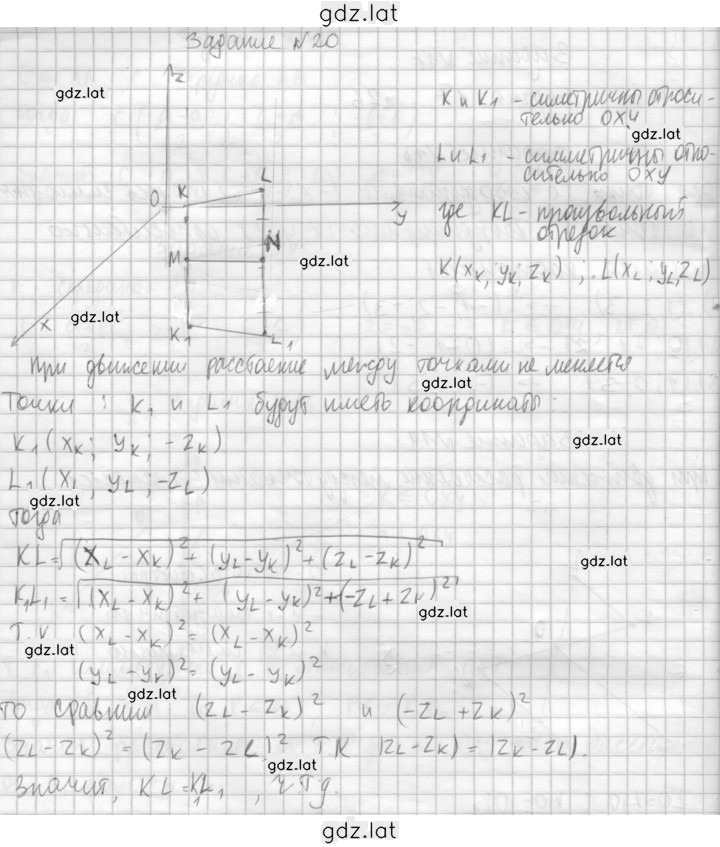 gdz.lat
Задание №20
z
gdz.lat
K и K1 - симметричны относи-
тельно OXY
gdz.lat
L и L1 - симметричны отно-
сительно OXY
O K L
y
где KL - произвольный
отрезок
N
M
gdz.lat
K(xK; yK; zK) ; L(xL; yL; zL)
gdz.lat
x
K1 L1
При движении расстояние между точками не меняется
gdz.lat
Точки : K1 и L1 будут иметь координаты:
K1(xK; yK; -zK)
gdz.lat
L1(xL; yL; -zL)
gdz.lat
Тогда
KL=√(xL-xK)²+(yL-yK)²+(zL-zK)²
gdz.lat
K1L1=√(xL-xK)²+(yL-yK)²+(-zL+zK)²
gdz.lat
Т.к (xL-xK)²=(xL-xK)²
gdz.lat
(yL-yK)²=(yL-yK)²
gdz.lat
то сравним (zL-zK)² и (-zL+zK)²
(zL-zK)²=(zK-zL)² т.к |zL-zK|=|zK-zL|.
gdz.lat
Значит, KL=K1L1, ч т д.
gdz.lat